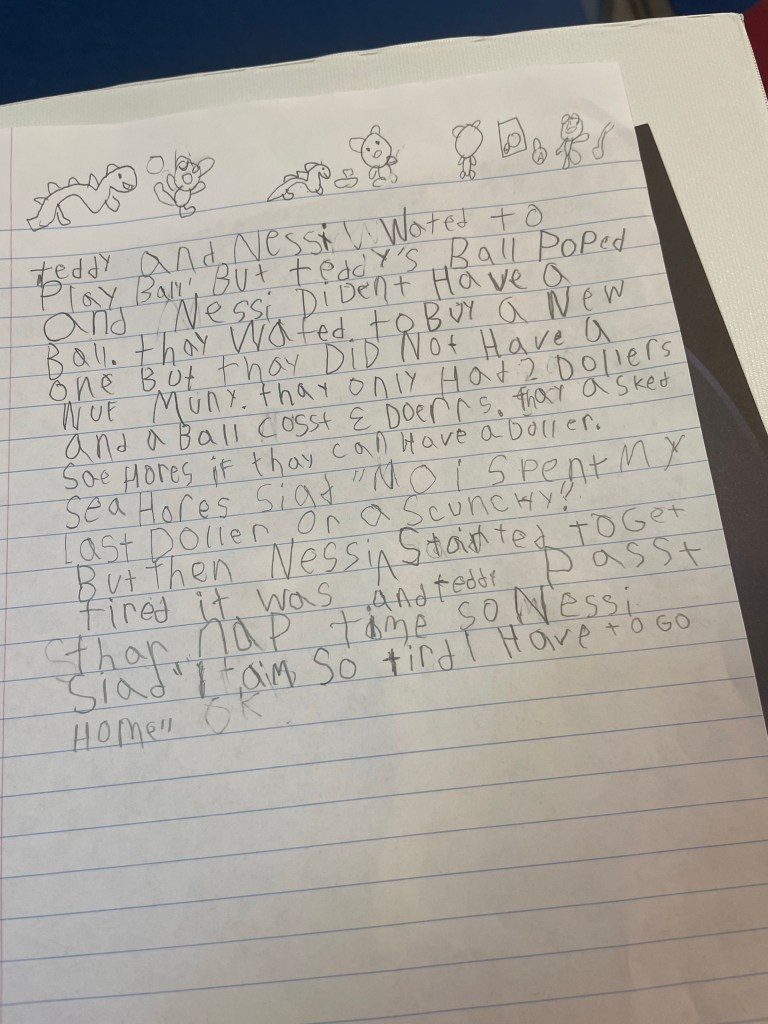 teddy and Nessi Wated to
Play Ball. But teddy's Ball Poped
and Nessi Dident Have a
Ball. thay Wated to Buy a New
one But thay DiD Not Have a
Nuf Muny. thay only Had 2 Dollers
and a Ball Cosst Doerrs. thay asked
Sae Hores if thay can Have a Doller.
Sea Hores Siad "NO i Spent MY
Last Doller on a Scunchy!"
But then Nessi Started to Get
tired it was and teddy Passt
thar nap time so Nessi
Siad "I aim So tird I Have to GO
Home" OK